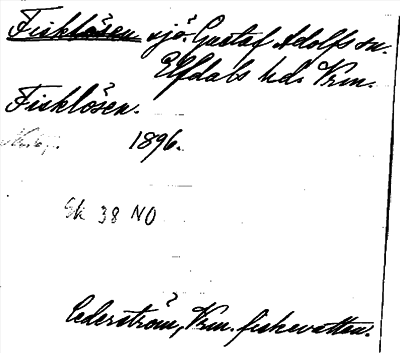 Fisklösen sjö. Gustaf Adolfs sn.
Elfdals hd. Vrm.
Fisklösen.
1896.
Ek 38 NO
Cederström, Vrm. fiskevatten.